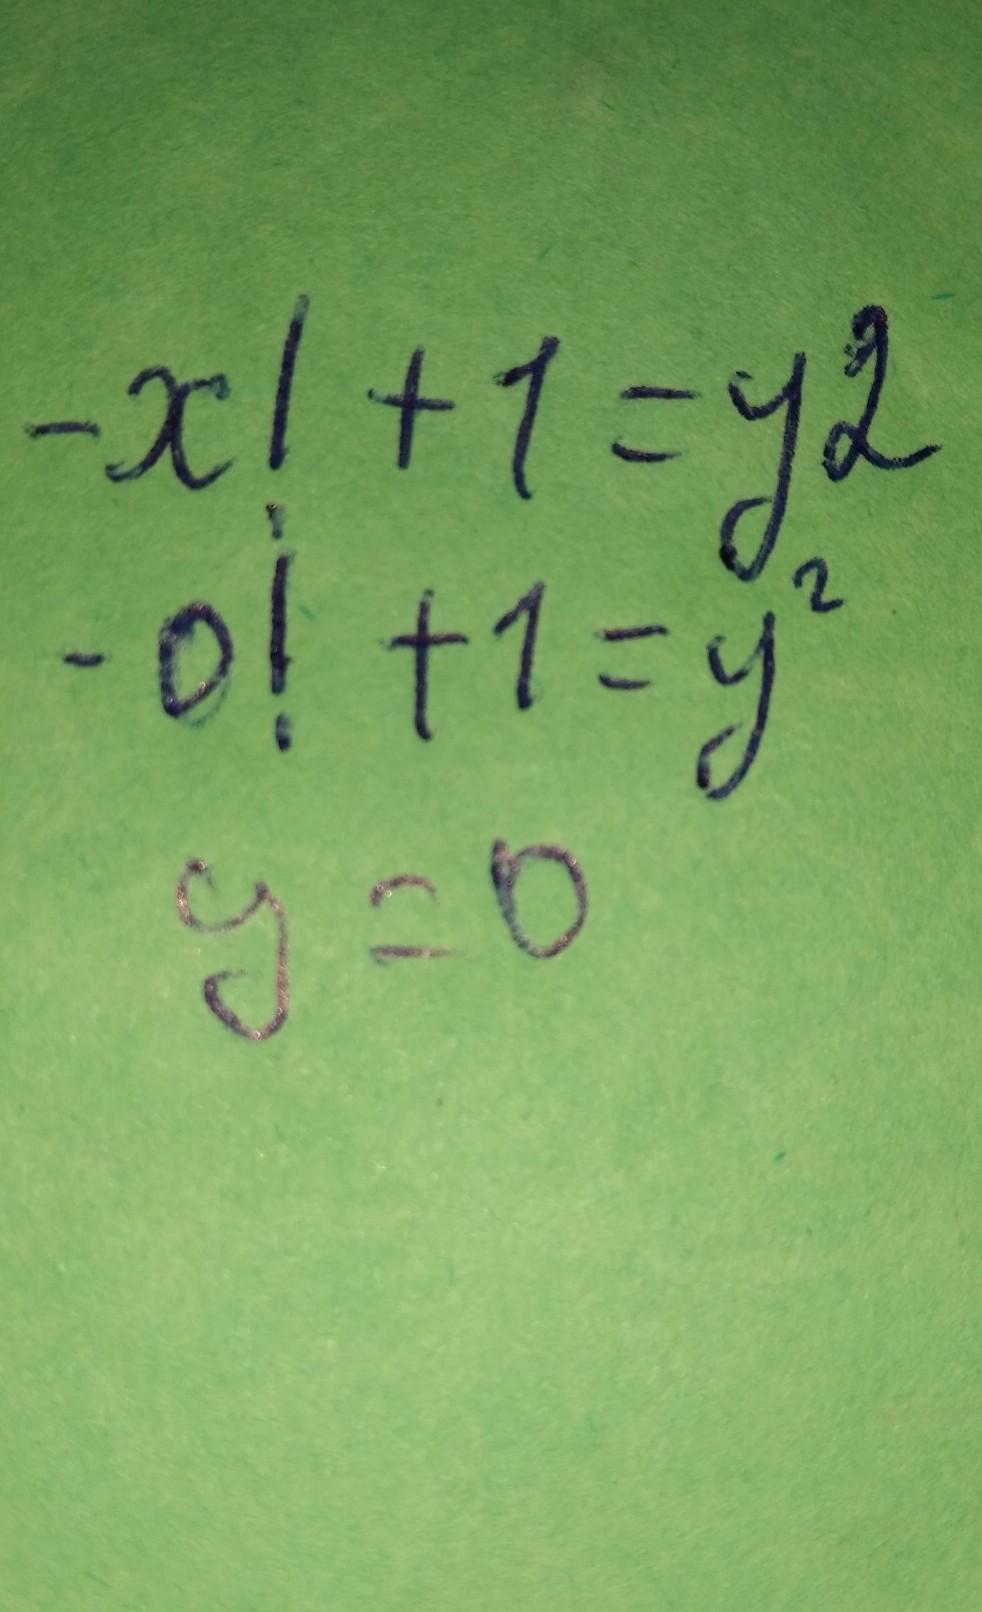 -x! + 1 = y2
-0! + 1 = y²
y = 0